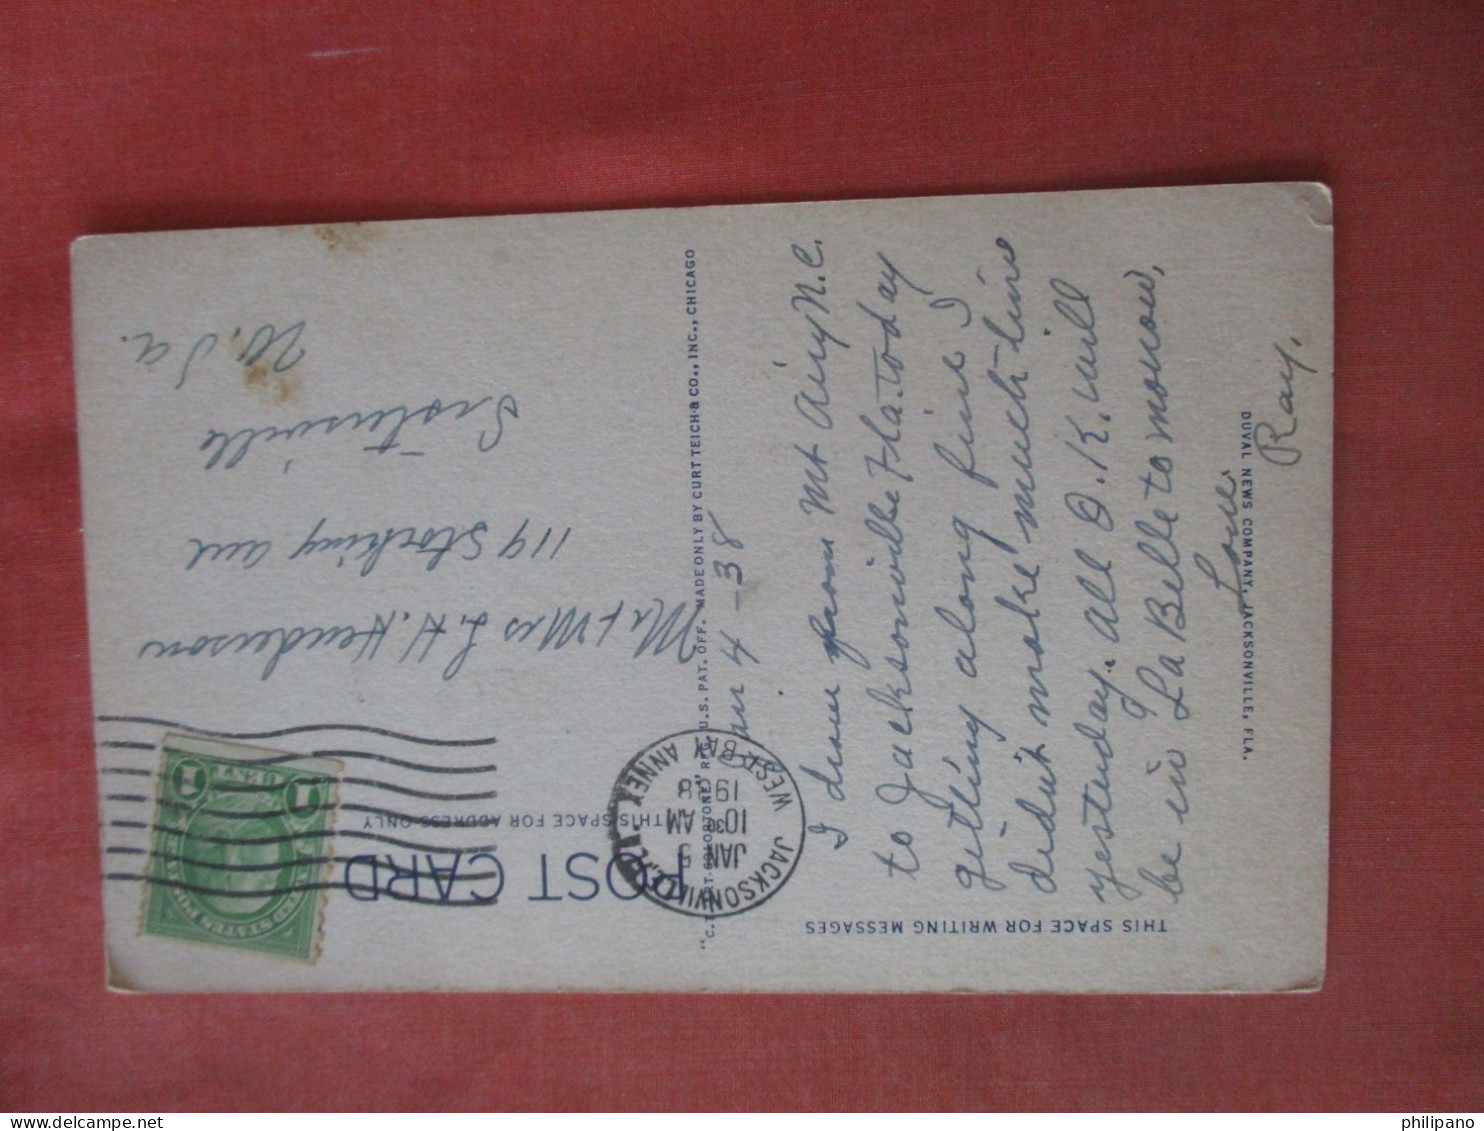 THIS SPACE FOR WRITING MESSAGES
Jan 4-38
I drove from Mt Airy N.C.
to Jacksonville Fla. today
getting along fine I
didn't make much time
yesterday. All O.K. will
be in La Belle tomorrow,
Love
Ray.
DUVAL NEWS COMPANY, JACKSONVILLE, FLA.
"C.T. ART-COLORTONE" REG. U.S. PAT. OFF. MADE ONLY BY CURT TEICH & CO., INC., CHICAGO
POST CARD
THIS SPACE FOR ADDRESS ONLY
JACKSONVILLE, FLA.
JAN 5
10 30 AM
1938
WEST BAY ANNEX
Mr + Mrs L. H. Henderson
119 Stocking ave
Sistersville
W. Va.
philipano